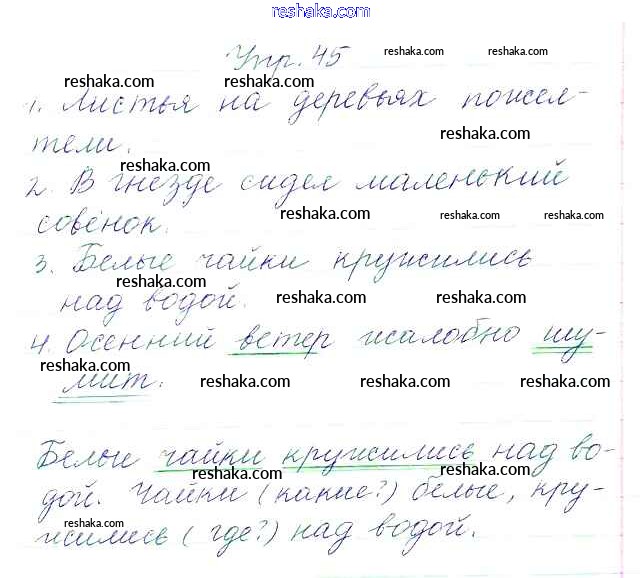 reshaka.com
Упр. 45 reshaka.com reshaka.com
reshaka.com reshaka.com
1. Листья на деревьях пожел-
reshaka.com
тели.
reshaka.com
2. В гнезде сидел маленький
reshaka.com reshaka.com reshaka.com
совёнок.
3. Белые чайки кружились
reshaka.com
над водой. reshaka.com reshaka.com
4. Осенний ветер жалобно шу-
reshaka.com
мит. reshaka.com reshaka.com reshaka.com
Белые чайки кружились над во-
reshaka.com reshaka.com
дой. Чайки (какие?) белые, кру-
reshaka.com
жились (где?) над водой.
reshaka.com reshaka.com reshaka.com